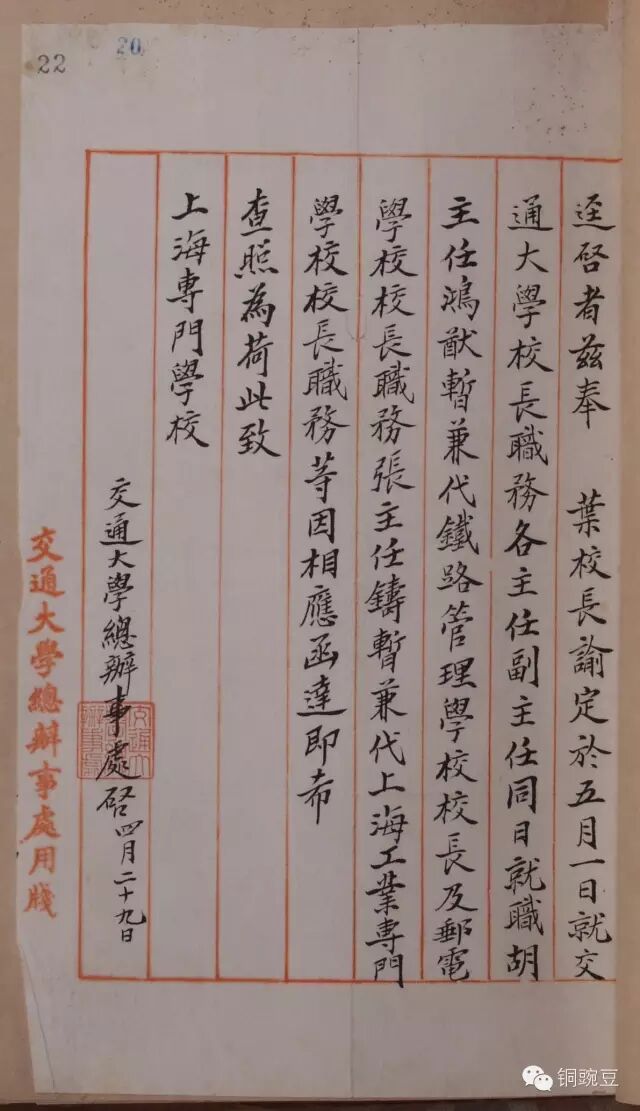 22
20
迳啓者兹奉　葉校長諭定於五月一日就交
通大學校長職務各主任副主任同日就職胡
主任鴻猷暫兼代鐵路管理學校校長及郵電
學校校長職務張主任鑄暫兼代上海工業專門
學校校長職務等因相應函達即希
查照為荷此致
上海專門學校
交通大學總辦事處啓四月二十九日
交通大學總辦事處用牋
铜豌豆